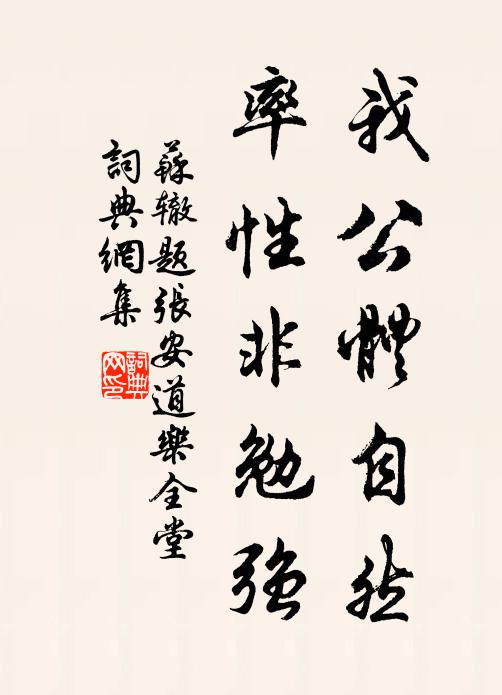 我公體自然
率性非勉强
蘇辙題張安道樂全堂
詞典網集
詞典網印